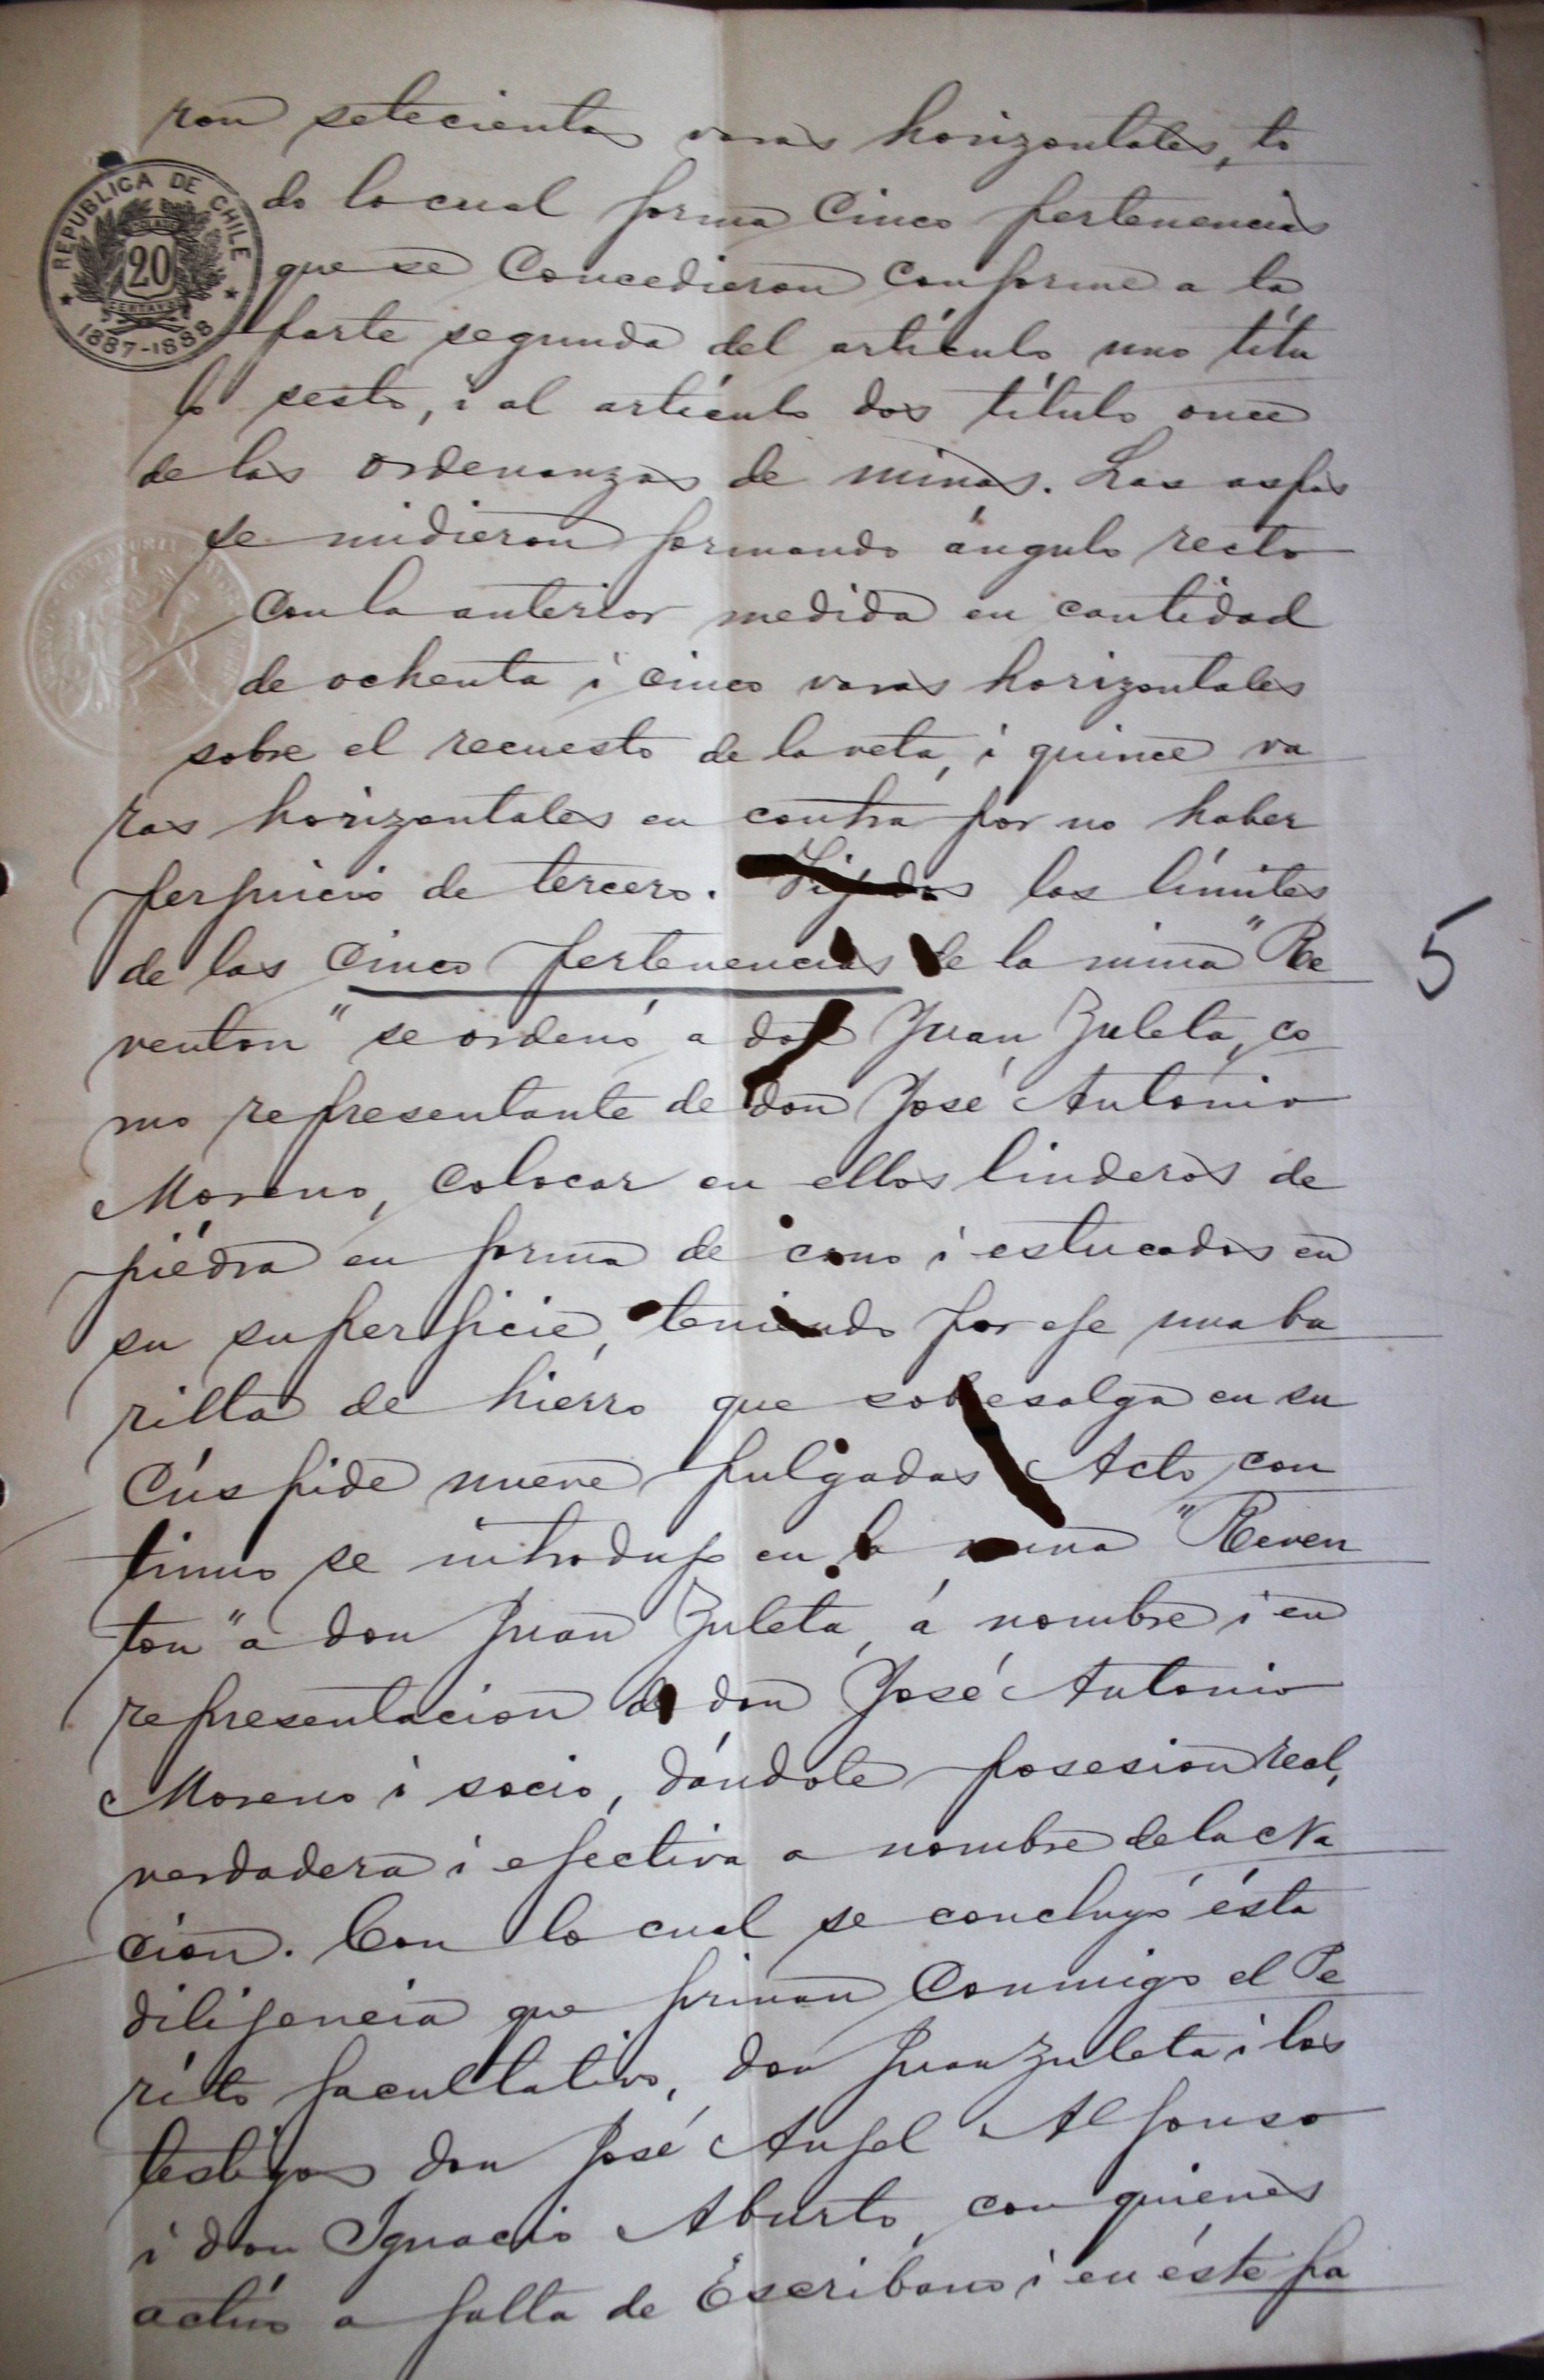 REPUBLICA DE CHILE
20
CENTAVOS
1887-1888
ron setecientas varas horizontales, to
do lo cual forma cinco pertenencias
que se concedieron conforme a la
parte segunda del artículo uno títu
lo sesto, i al artículo dos título once
de las ordenanzas de minas. Las aspas
se midieron formando ángulo recto
con la anterior medida en cantidad
de ochenta i cinco varas horizontales
sobre el recuesto de la veta, i quince va
ras horizontales en contra por no haber
perjuicio de tercero. Fijados los límites
de las cinco pertenencias de la mina "Re
venton" se ordenó a don Juan Zuleta, co
mo representante de don José Antonio
Moreno, colocar en ellos linderos de
piedra en forma de cono i estucados en
su superficie, teniendo por eje una ba
rilla de hierro que sobresalga en su
cúspide nueve pulgadas. Acto con
tinuo se introdujo en la mina "Reven
ton" a don Juan Zuleta, á nombre i en
representacion de don José Antonio
Moreno i socio, dándole posesion real,
verdadera i efectiva a nombre de la Na
cion. Con lo cual se concluyó ésta
dilijencia que firman conmigo el Pe
rito facultativo, don Juan Zuleta i los
testigos don José Anjel Alfonso
i don Ignacio Aburto, con quienes
actúo a falta de Escribano i en éste pa
5